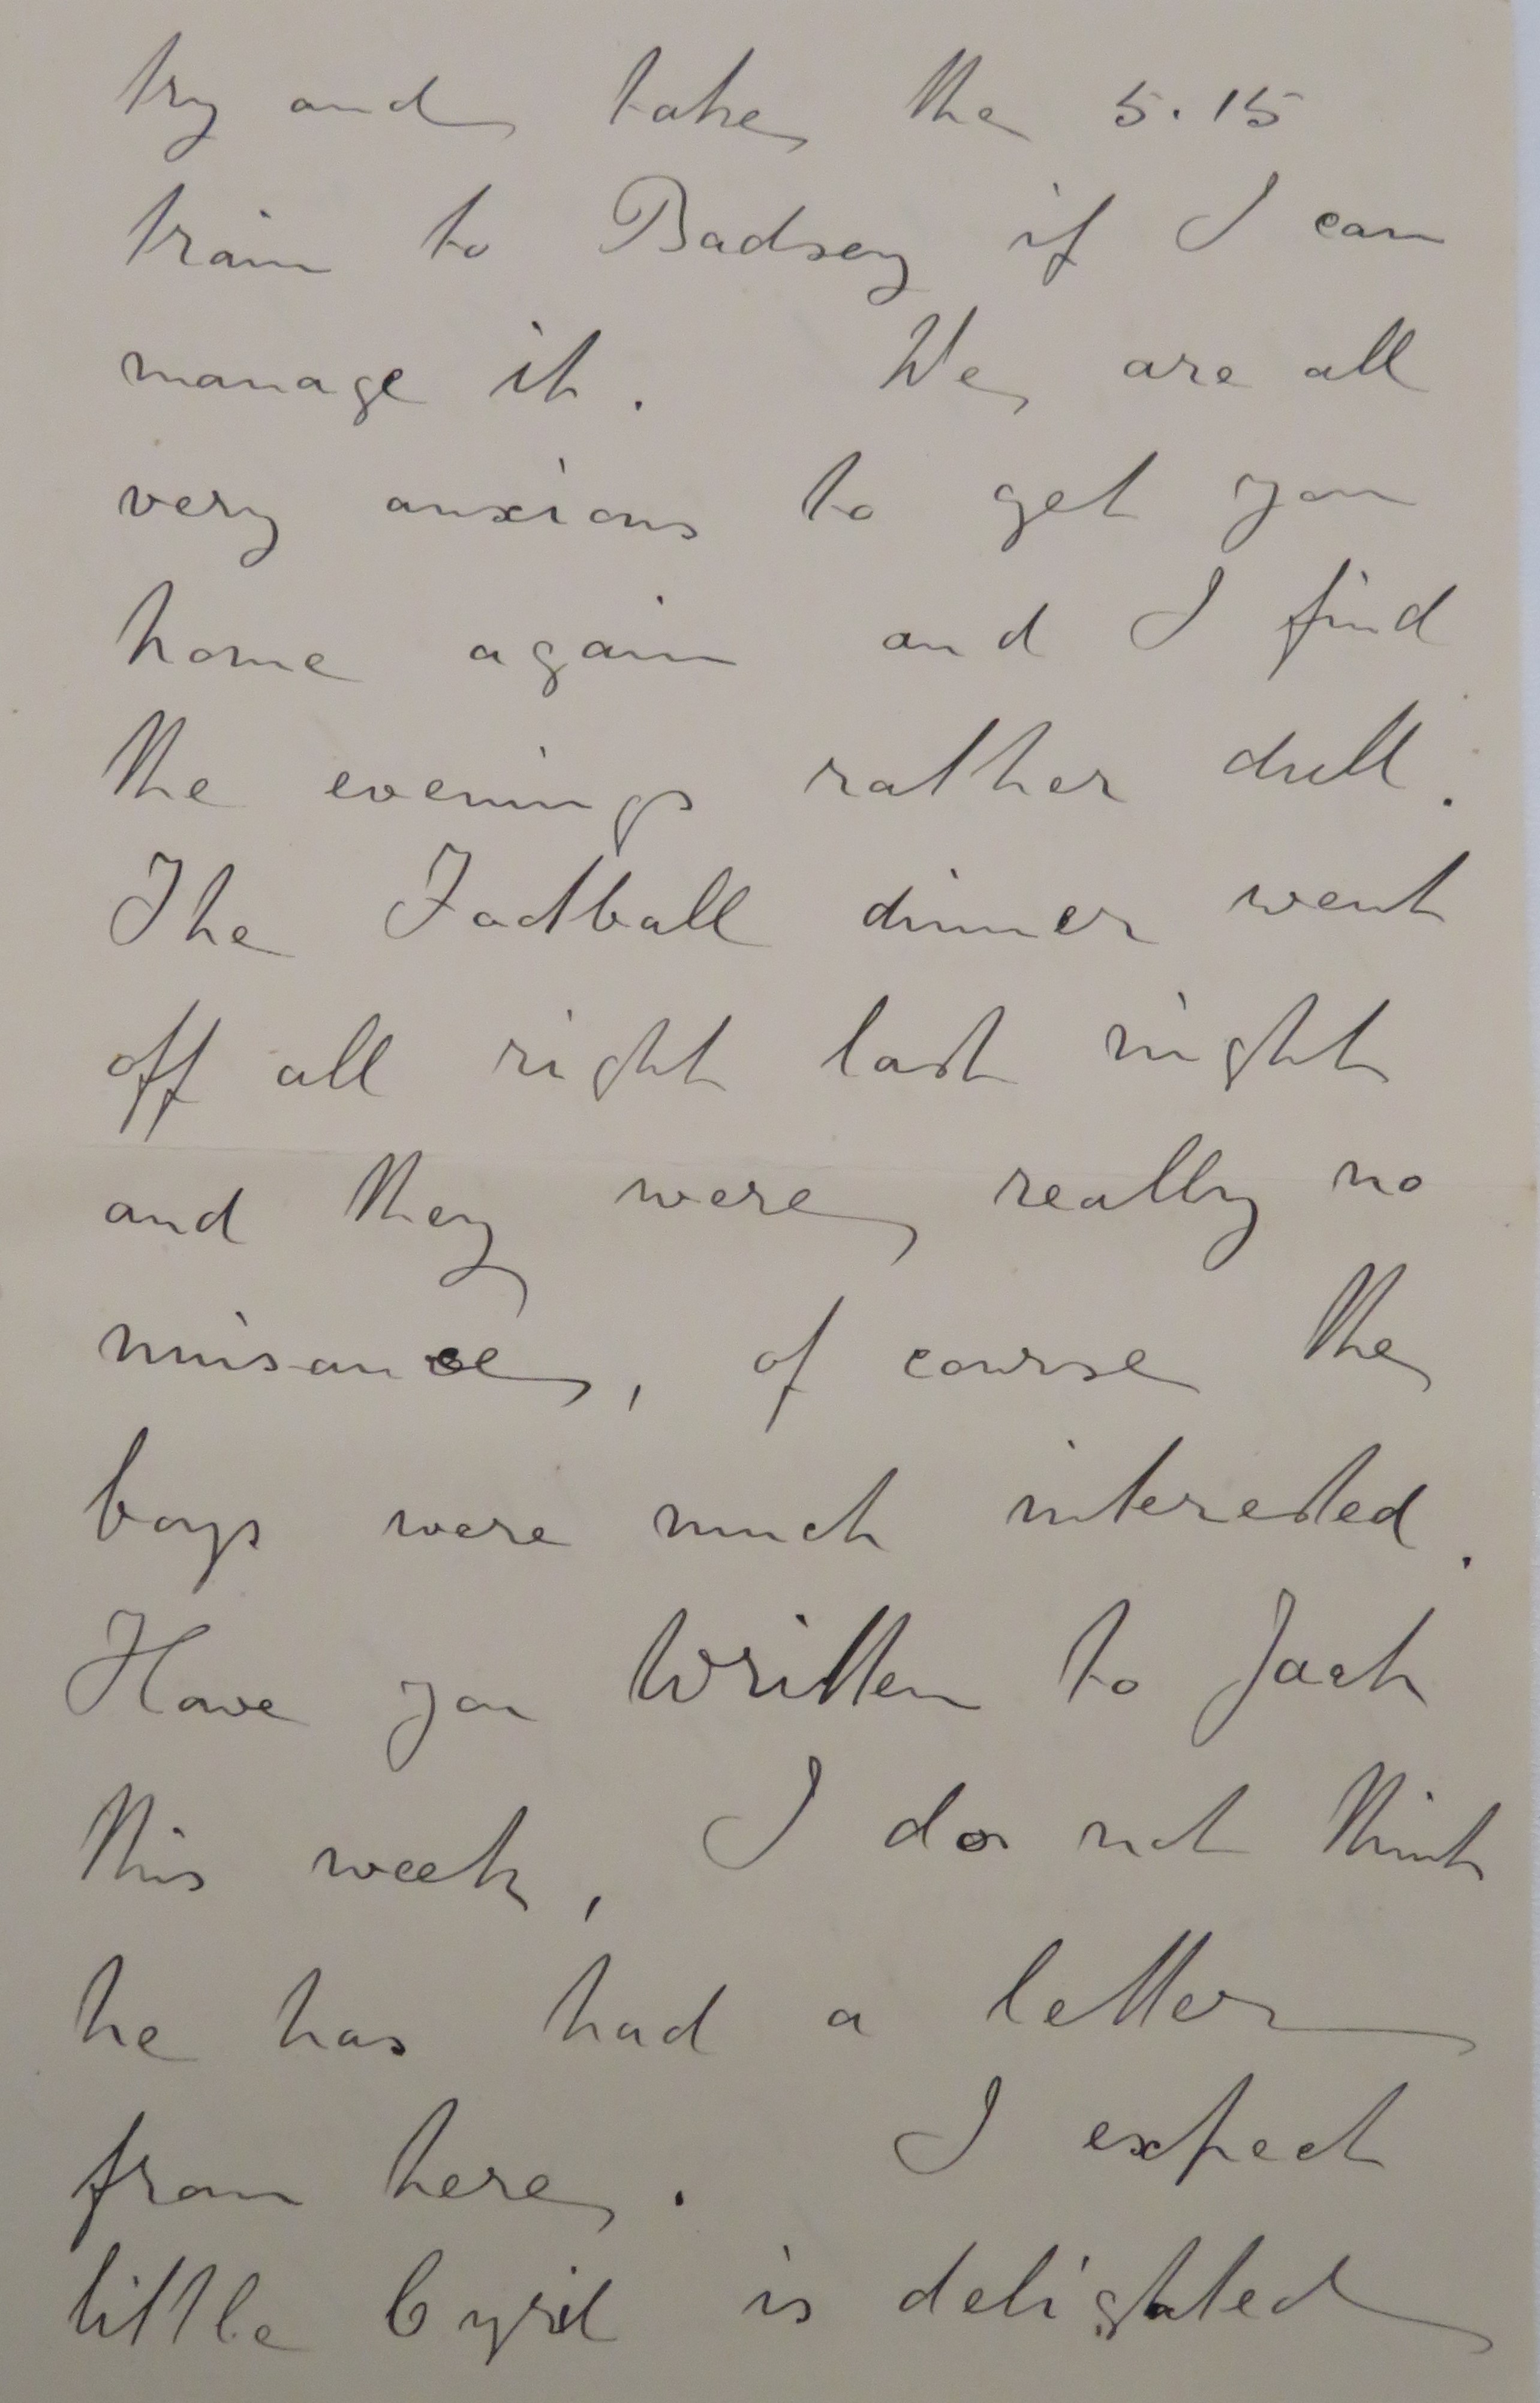 try and take the 5.15
train to Badsey if I can
manage it. We are all
very anxious to get you
home again and I find
the evenings rather dull.
The Football dinner went
off all right last night
and they were really no
nuisance, of course the
boys were much interested.
Have you written to Jack
this week, I do not think
he has had a letter
from here. I expect
little Cyril is delighted